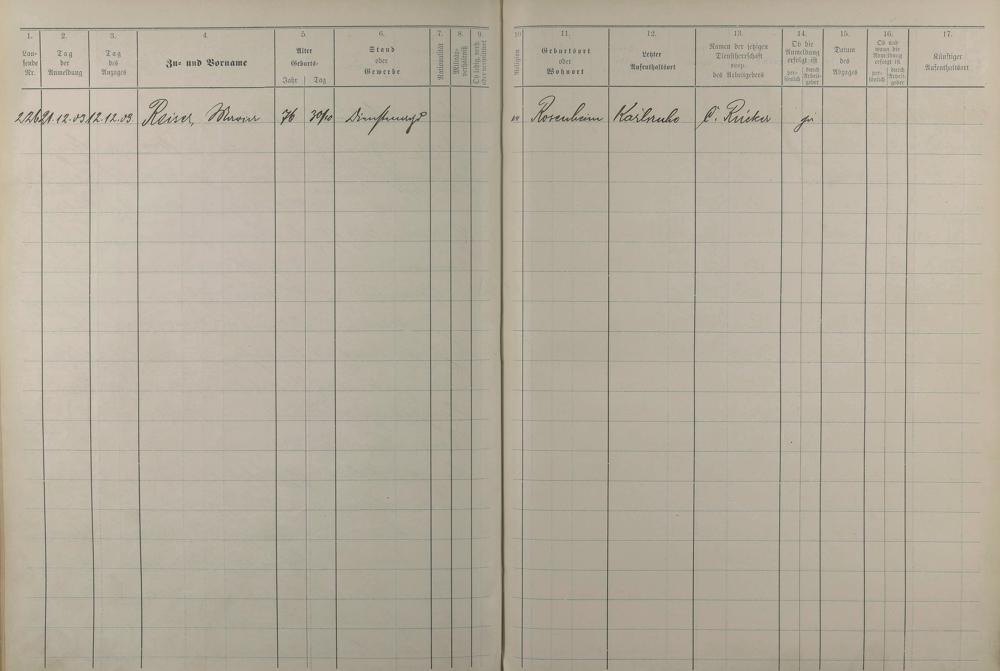 1. 2. 3. 4. 5. 6. 7. 8. 9. 10 11. 12. 13. 14. 15. 16. 17.
Lau-
fende
Nr.
Tag
der
Anmeldung
Tag
des
Anzuges
Zu- und Vorname
Alter
Geburts-
Jahr Tag
Stand
oder
Gewerbe
Nationalität
Militär-
verhältniß
Ob ledig, verh.
oder verwittwet
Religion
Geburtsort
oder
Wohnort
Letzter
Aufenthaltsort
Namen der jetzigen
Dienstherrschaft
resp.
des Arbeitgebers
Ob die
Anmeldung
erfolgt ist
per-
sönlich
durch
Arbeit-
geber
Datum
des
Abzuges
Ob und
wann die
Abmeldung
erfolgt ist
per-
sönlich
durch
Arbeit-
geber
Künftiger
Aufenthaltsort
226 21.12.03 12.12.03 Reiser, 76 30/10 Dienstmagd Rosenheim Karlsruhe C. Rücker